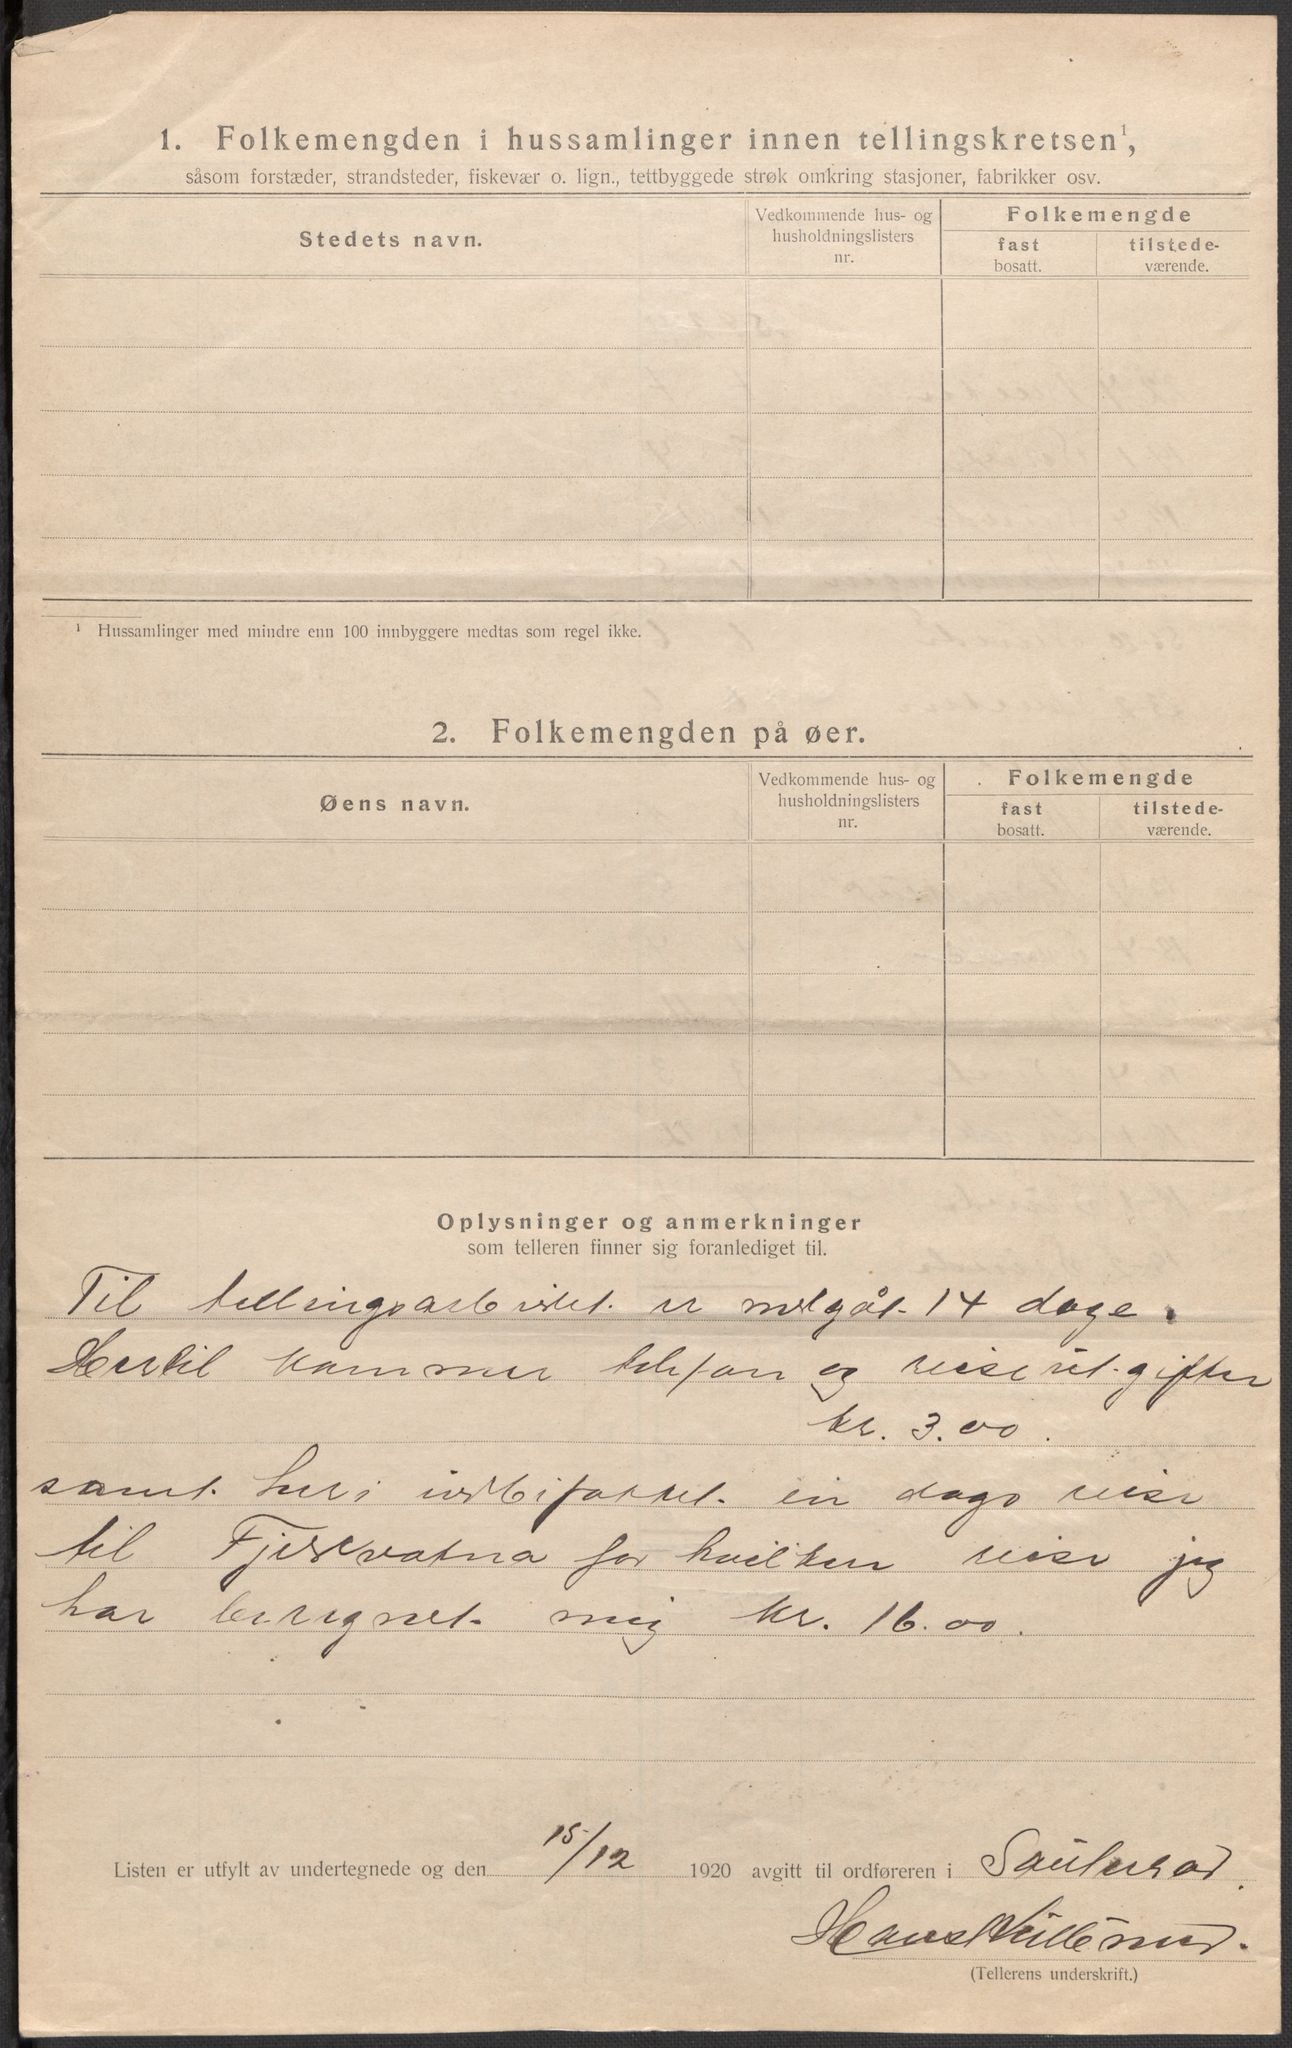 1. Folkemengden i hussamlinger innen tellingskretsen¹,
såsom forstæder, strandsteder, fiskevær o. lign., tettbyggede strøk omkring stasjoner, fabrikker osv.
Stedets navn.
Vedkommende hus- og
husholdningslisters
nr.
Folkemengde
fast
bosatt.
tilstede-
værende.
¹ Hussamlinger med mindre enn 100 innbyggere medtas som regel ikke.
2. Folkemengden på øer.
Øens navn.
Vedkommende hus- og
husholdningslisters
nr.
Folkemengde
fast
bosatt.
tilstede-
værende.
Oplysninger og anmerkninger
som telleren finner sig foranlediget til.
Til tellingsarbeidet er medgåt 14 dage.
Hertil kommer telefon og reiseutgifter
kr. 3.00.
samt heri indbifattet en dags reise
til for hvilken reise jeg
har beregnet mig kr. 16.00.
Listen er utfylt av undertegnede og den 15/12 1920 avgitt til ordføreren i Sauherad.
Hans
(Tellerens underskrift.)